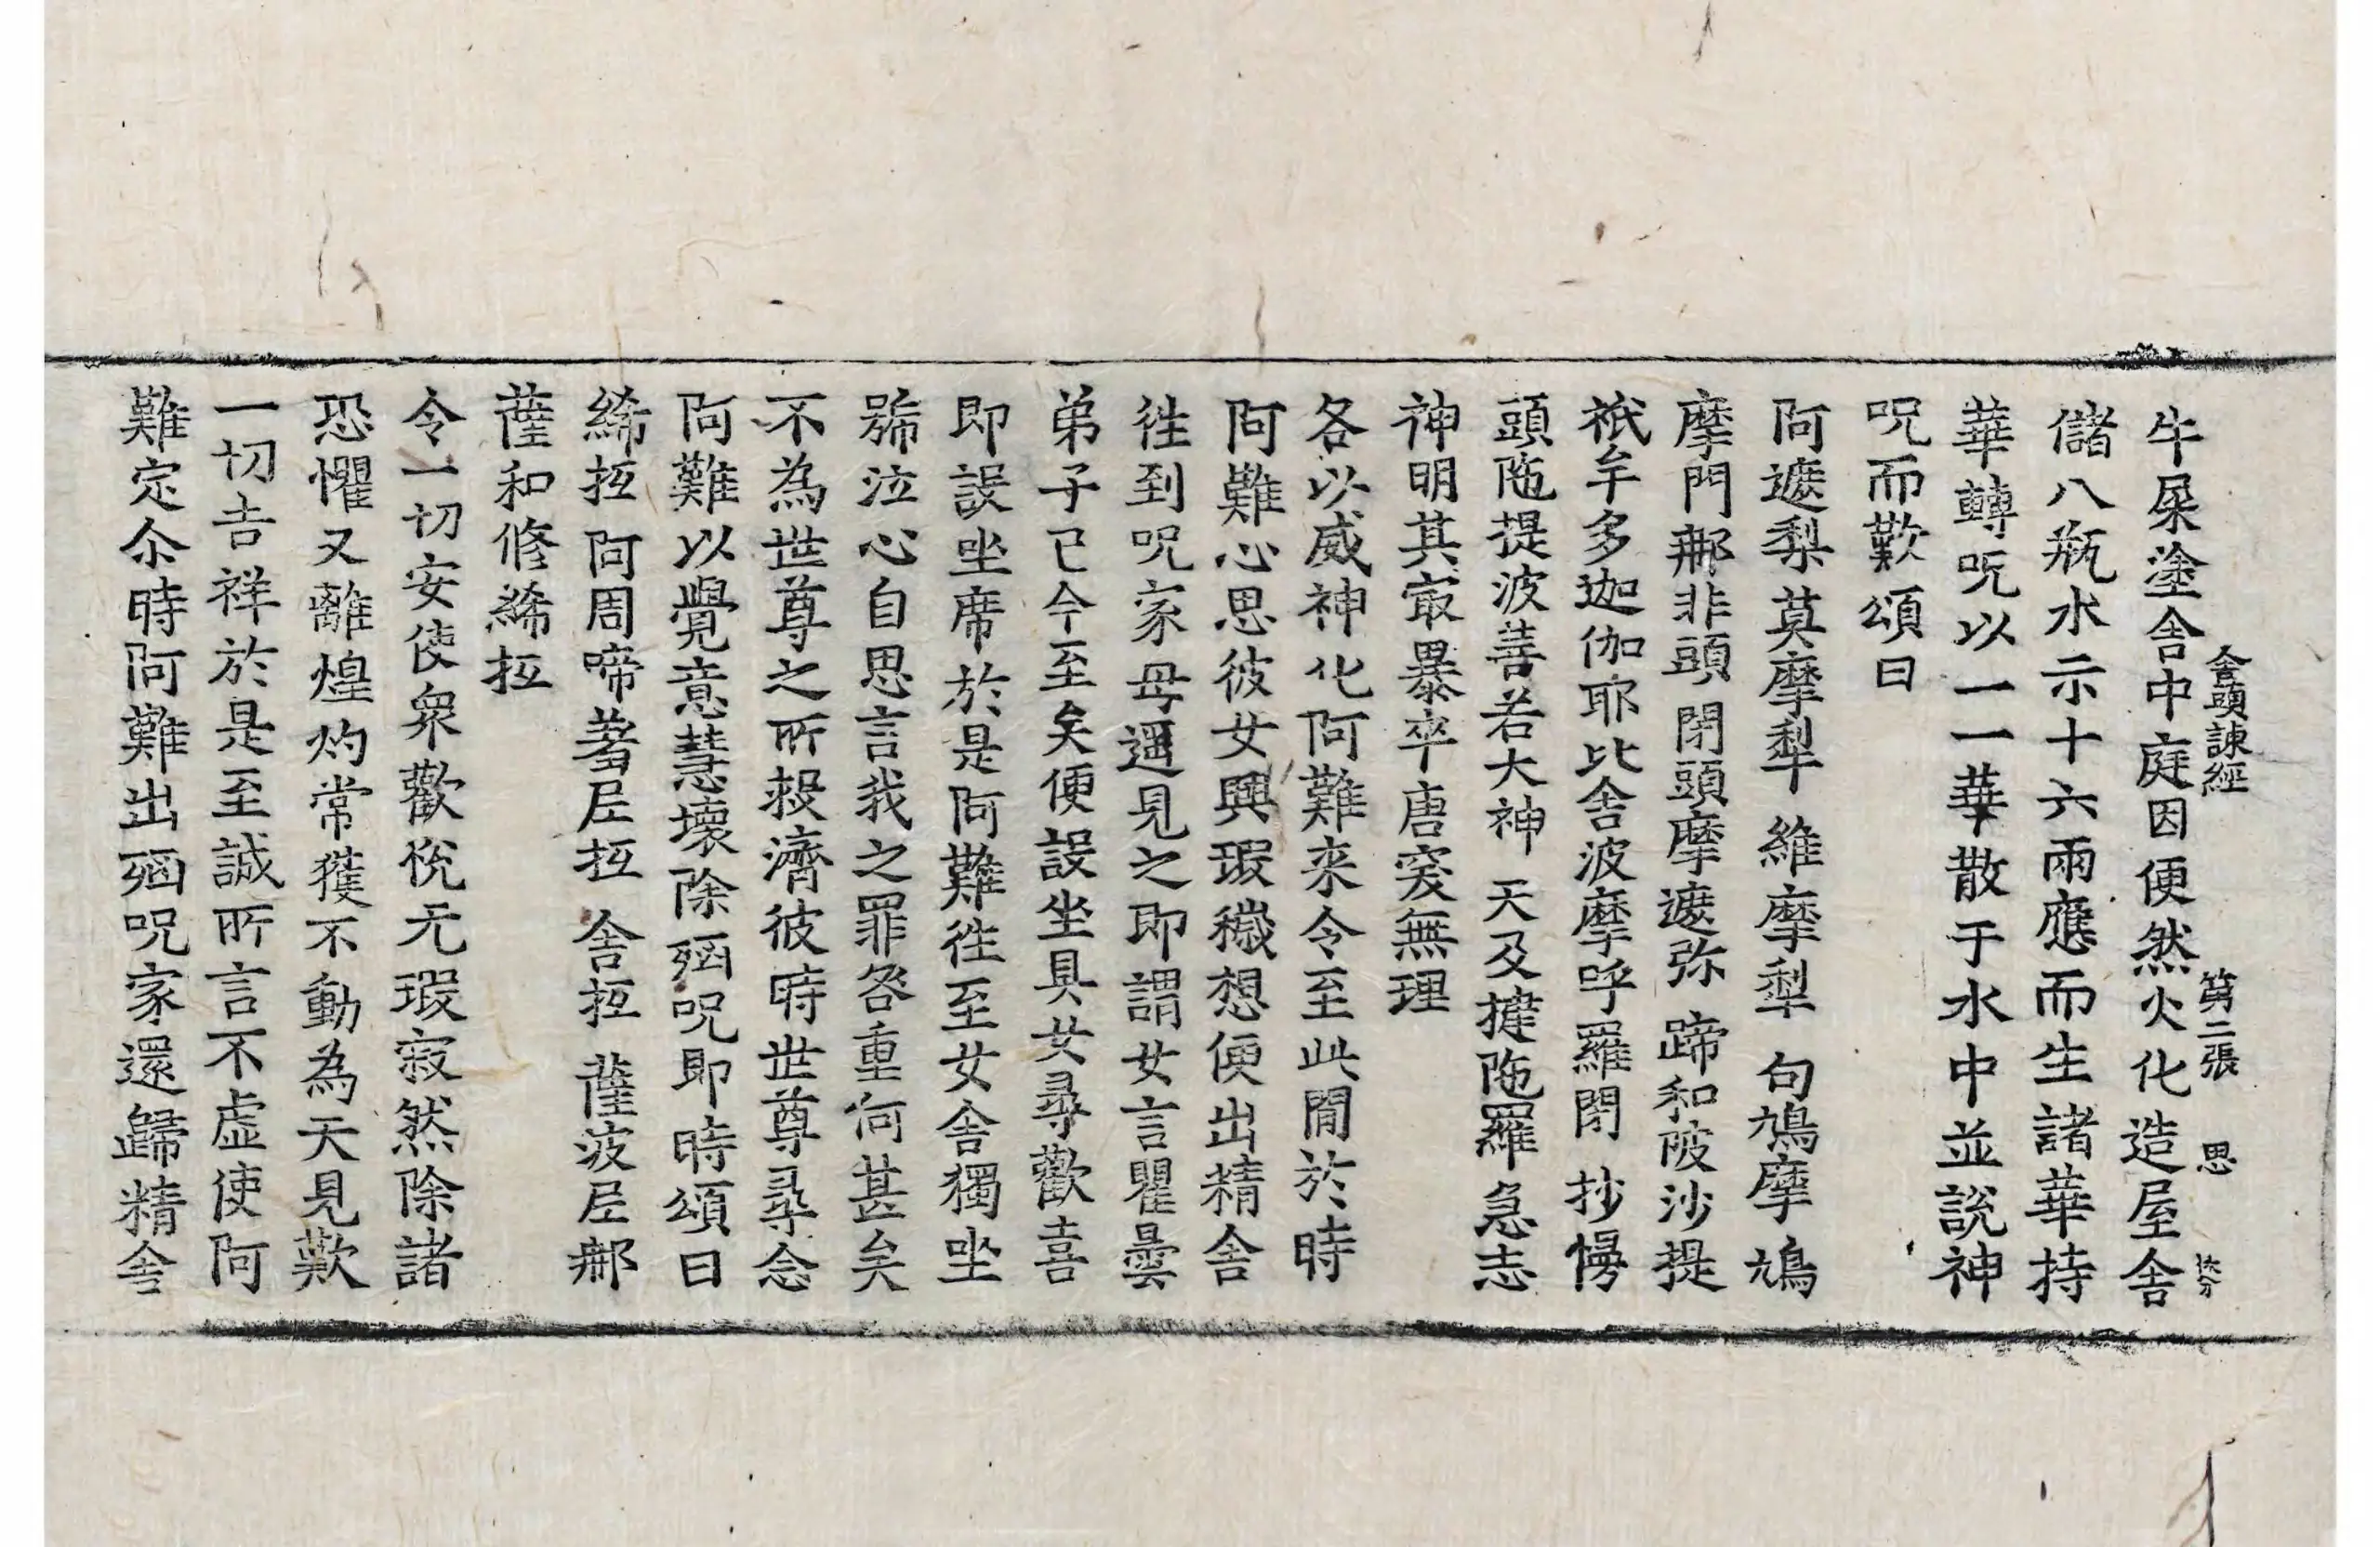 舍頭諫經 第二張 思
牛屎塗舍中庭因便然火化造屋舍
儲八瓶水示十六兩應而生諸華持
華轉呪以一一華散于水中並說神
呪而歎頌曰
阿遮梨 莫摩犁 維摩犁 句鳩摩 鳩
摩門 那非頭 閉頭摩遮弥 蹄和陂沙提
祇牟多迦伽耶比舍波摩呼羅閉 抄慢
頭陁提波菩若大神 天及揵陁羅 急志
神明其㝡暴卒唐突無理
各以威神化阿難来令至此閒於時
阿難心思彼女興瑕穢想便出精舍
徃到呪家母遥見之即謂女言瞿曇
弟子已今至矣便設坐具女尋歡喜
即設坐席於是阿難徃至女舍獨坐
號泣心自思言我之罪咎重何甚矣
不為世尊之所救濟彼時世尊尋念
阿難以覺意慧壞除㓙呪即時頌曰
絺抵 阿周啼 蓍𡰱抵 舍抵 薩波𡰱那
薩和修絺抵
令一切安使衆歡恱无瑕寂然除諸
恐懼又離煌灼常獲不動為天見歎
一切吉祥於是至誠所言不虛使阿
難定尒時阿難出㓙呪家還歸精舍